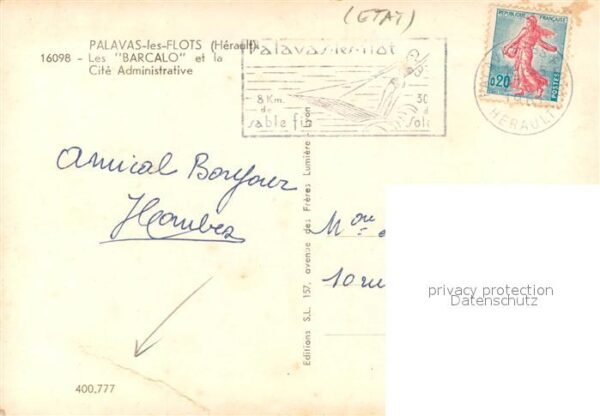 (ETAT)
PALAVAS-les-FLOTS (Hérault)
16098 - Les "BARCALO" et la
Cité Administrative
Palavas-les-flot
8 Km.
de
sable fin
30
d
sole
REPUBLIQUE FRANÇAISE
0,20
POSTES
HERAULT
Amical Bonjour
Mon
10 ru
Editions S.L. 157, avenue des Frères Lumière - Lyon
privacy protection
Datenschutz
400.777